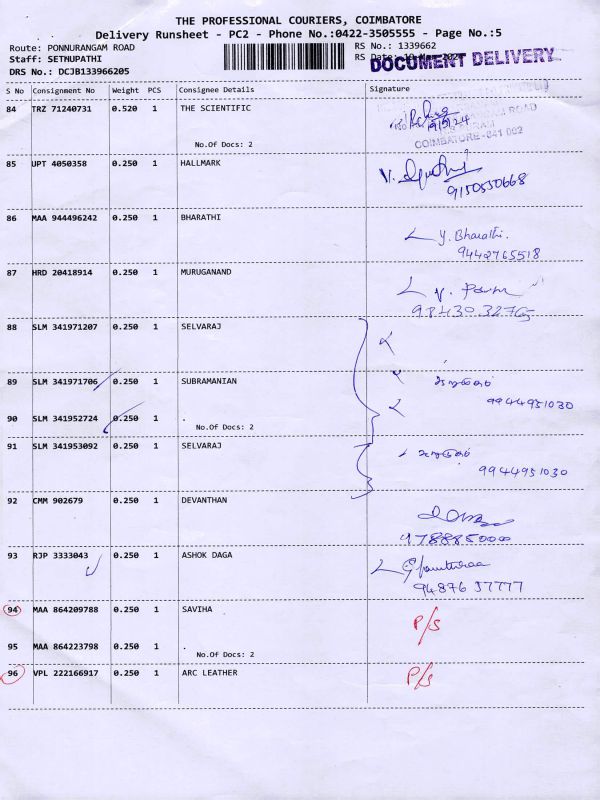 THE PROFESSIONAL COURIERS, COIMBATORE
Delivery Runsheet - PC2 - Phone No.:0422-3505555 - Page No.:5
Route: PONNURANGAM ROAD
RS No.: 1339662
Staff: SETHUPATHI
RS Date:
DOCUMENT DELIVERY
DRS No.: DCJB133966205
S No Consignment No Weight PCS Consignee Details Signature
84 TRZ 71240731 0.520 1 THE SCIENTIFIC
ROAD
No.Of Docs: 2
COIMBATORE-641 002
85 UPT 4050358 0.250 1 HALLMARK
9150550668
86 MAA 944496242 0.250 1 BHARATHI
y. Bharathi.
9442765518
87 HRD 20418914 0.250 1 MURUGANAND
88 SLM 341971207 0.250 1 SELVARAJ
89 SLM 341971706 0.250 1 SUBRAMANIAN
9944951030
90 SLM 341952724 0.250 1 .
No.Of Docs: 2
91 SLM 341953092 0.250 1 SELVARAJ
9944951030
92 CMM 902679 0.250 1 DEVANTHAN
9788850000
93 RJP 3333043 0.250 1 ASHOK DAGA
94876 37777
94 MAA 864209788 0.250 1 SAVIHA
P/S
95 MAA 864223798 0.250 1 .
No.Of Docs: 2
96 VPL 222166917 0.250 1 ARC LEATHER P/S